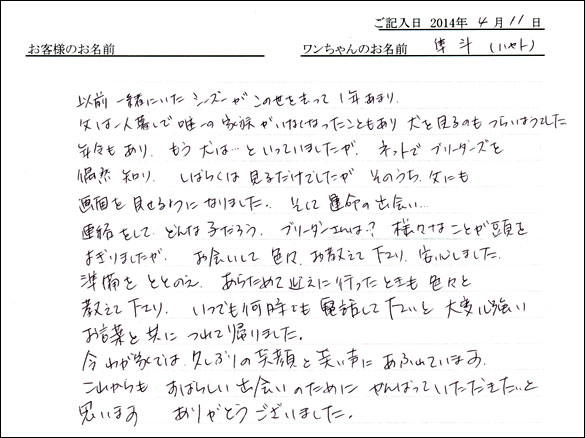 ご記入日 2014年 4月 11日
お客様のお名前 ワンちゃんのお名前 隼斗 (ハヤト)
以前 一緒にいた シーズーが この世を去って 1年あまり.
父は一人暮しで 唯一の 家族が いなくなったこともあり 犬を見るのも つらいようでした
年令もあり. もう 犬は… といっていましたが. ネットで ブリーダーズを
偶然 知り. しばらくは 見るだけでしたが そのうち. 父にも
画面を 見せるようになりました. そして 運命の出会い…
連絡をして. どんな子だろう. ブリーダーさんは? 様々なことが 頭を
よぎりましたが. お会いして 色々. お教えて下さり. 安心しました.
準備を ととのえ. あらためて 迎えに行ったときも 色々と
教えて下さり. いつでも 何時でも 電話して下さいと 大変心強い
お言葉と共に つれて帰りました.
今 わが家では 久しぶりの 笑顔と 笑い声に あふれています.
これからも すばらしい 出会いのために がんばっていただきたいと
思います ありがとうございました.